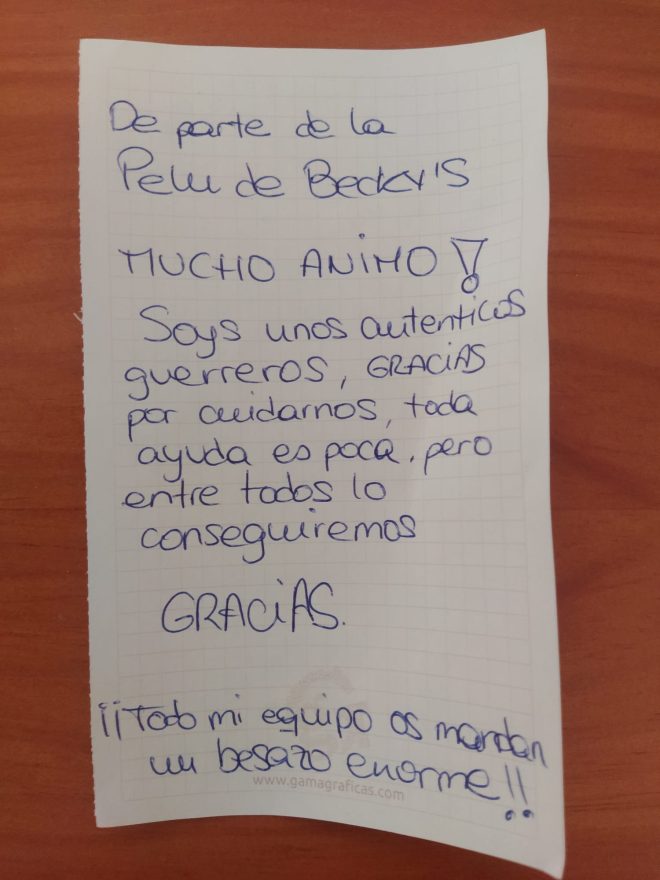 De parte de la
Pelu de Becky's
MUCHO ANIMO!
Soys unos autenticos
guerreros, GRACIAS
por cuidarnos, toda
ayuda es poca, pero
entre todos lo
conseguiremos
GRACIAS.
¡¡Todo mi equipo os mandan
un besazo enorme!!
www.gamagraficas.com